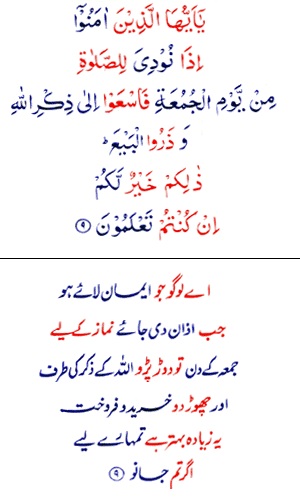 يٰۤاَيُّهَا الَّذِيْنَ اٰمَنُوْۤا
اِذَا نُوْدِيَ لِلصَّلٰوةِ
مِنْ يَّوْمِ الْجُمُعَةِ فَاسْعَوْا اِلٰى ذِكْرِ اللّٰهِ
وَ ذَرُوا الْبَيْعَ ؕ
ذٰلِكُمْ خَيْرٌ لَّكُمْ
اِنْ كُنْتُمْ تَعْلَمُوْنَ ۹
اے لوگو جو ایمان لائے ہو
جب اذان دی جائے نماز کے لیے
جمعہ کے دن تو دوڑ پڑو اللہ کے ذکر کی طرف
اور چھوڑ دو خرید و فروخت
یہ زیادہ بہتر ہے تمہارے لیے
اگر تم جانو ۹